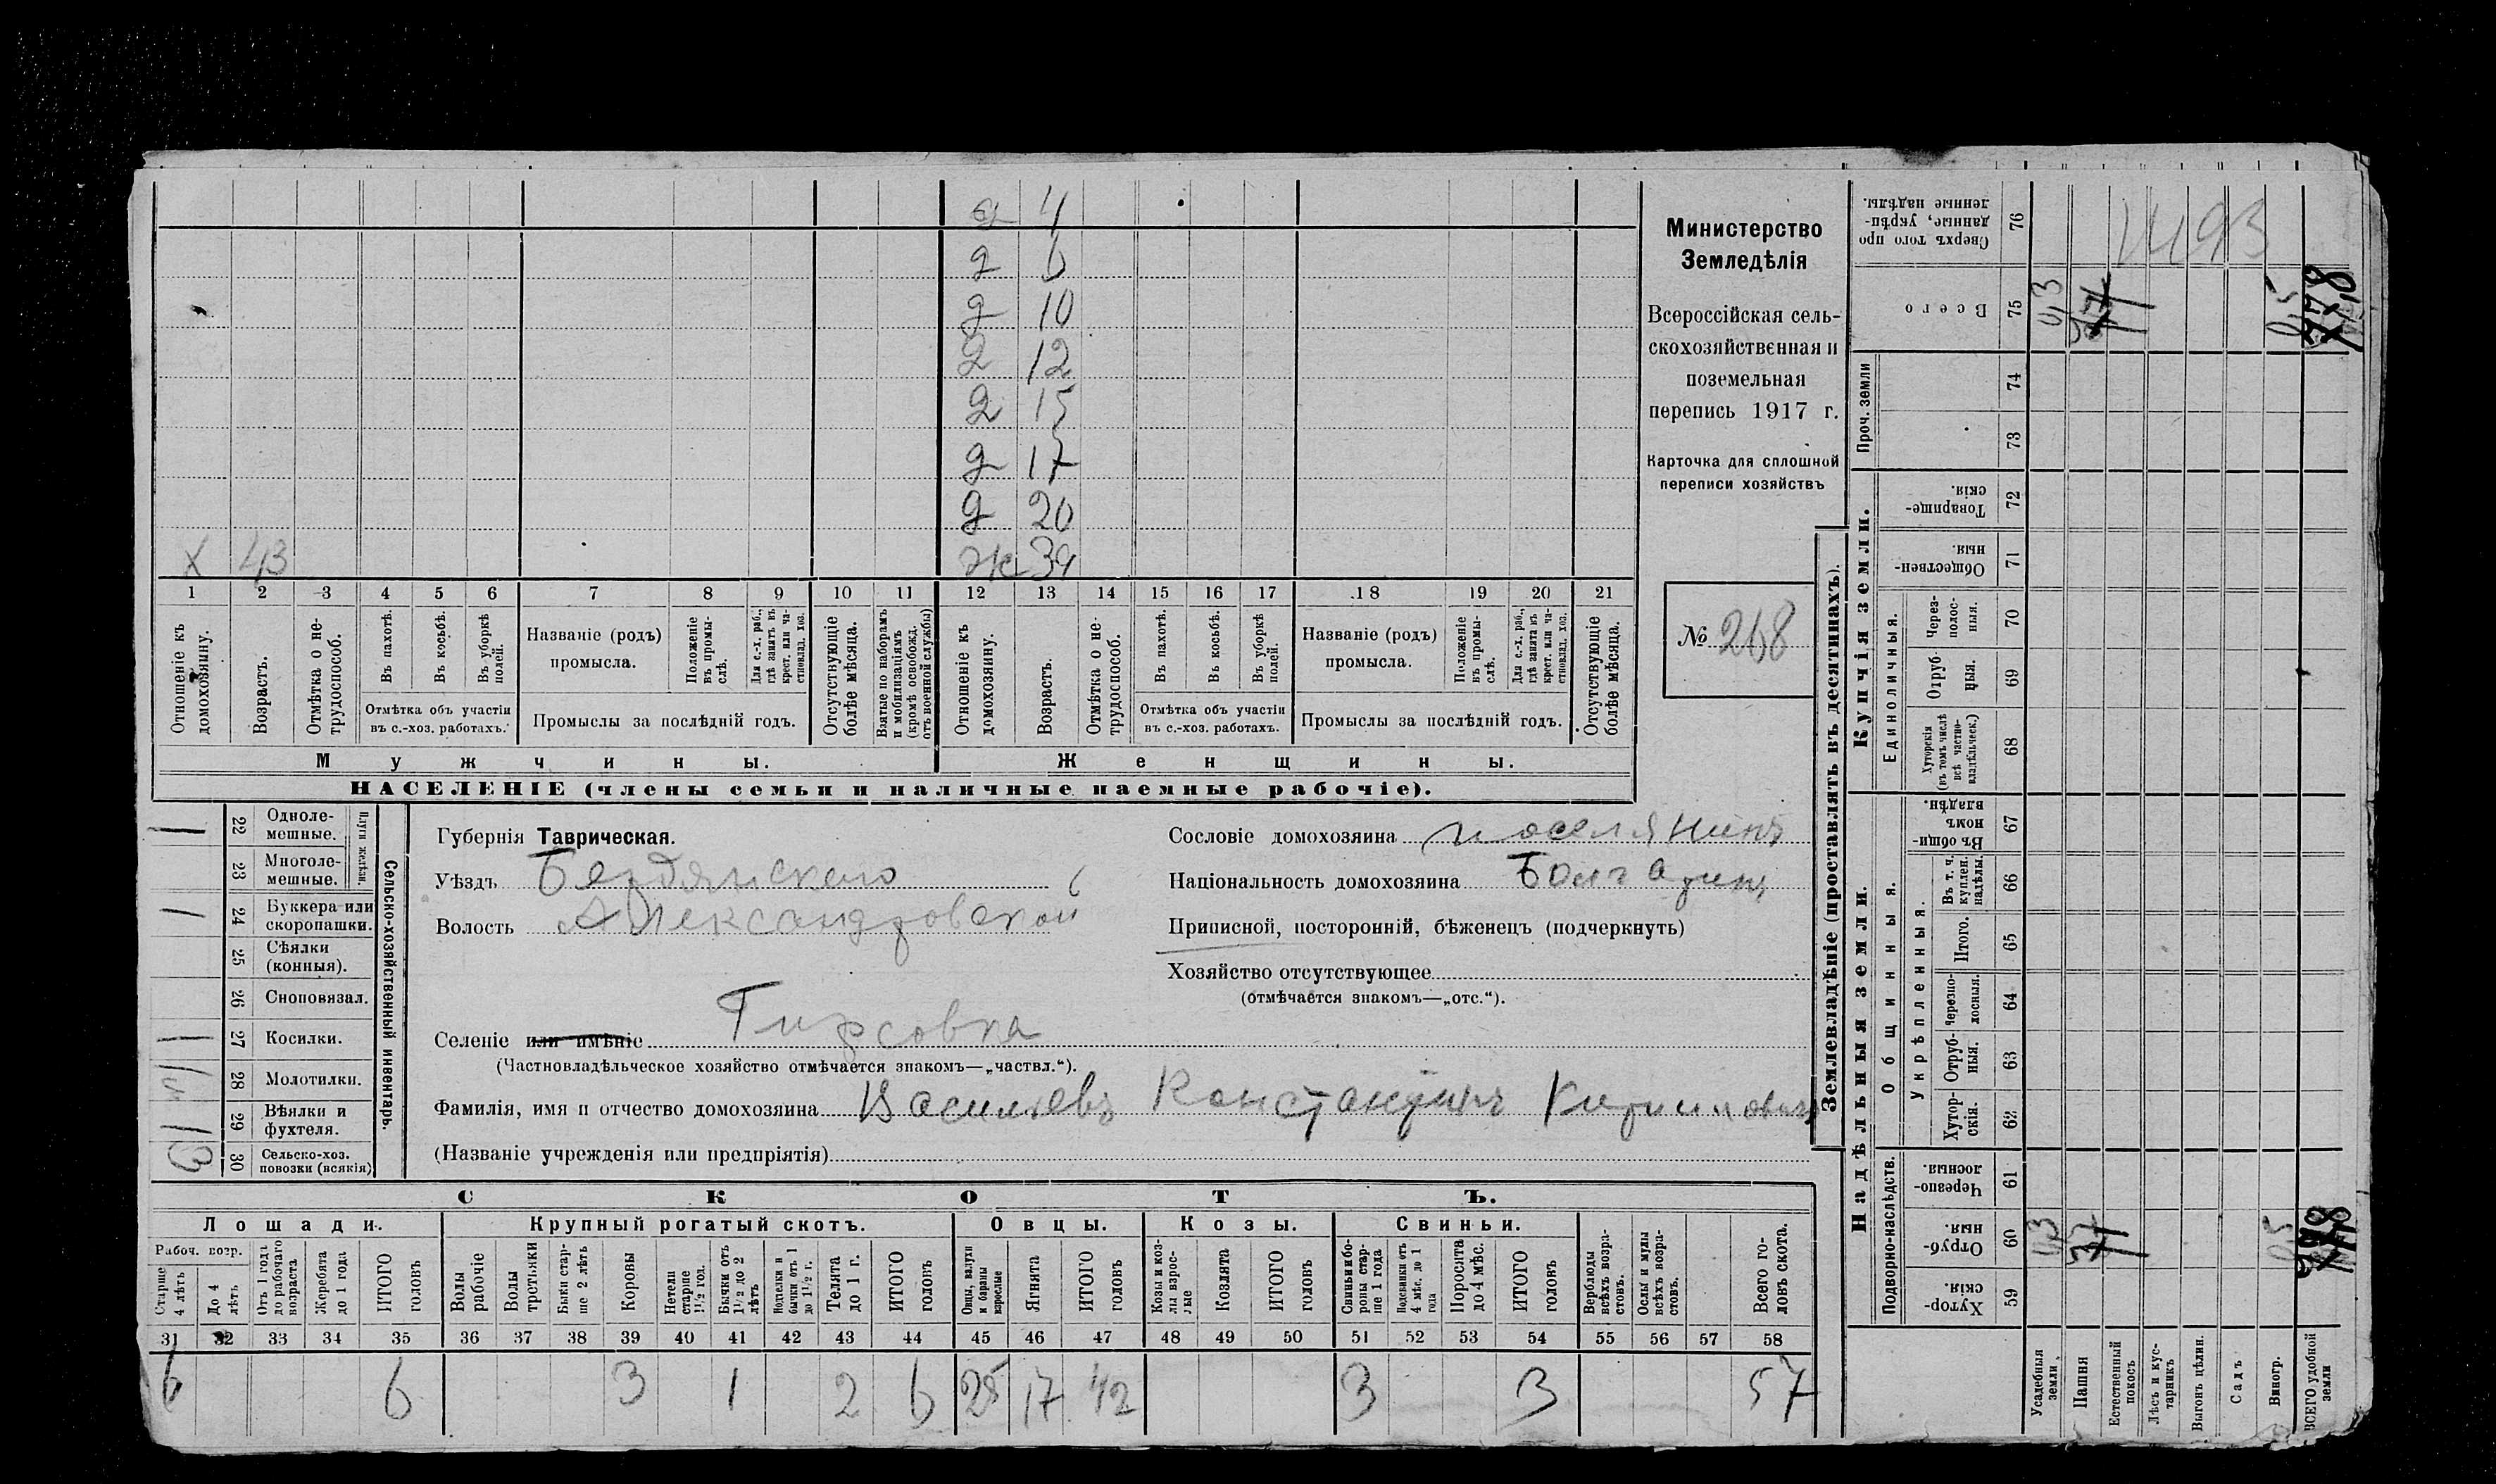 д 4
д 6
д 10
д 12
д 15
д 17
д 20
х 43 ж 39
1 2 3 4 5 6 7 8 9 10 11 12 13 14 15 16 17 18 19 20 21
Отношеніе къ домохозяину.
Возрастъ.
Отмѣтка о нетрудоспособ.
Въ пахотѣ.
Въ косьбѣ.
Въ уборкѣ полей.
Отмѣтка объ участіи въ с.-хоз. работахъ.
Названіе (родъ) промысла.
Положеніе въ промыслѣ.
Для с.-х. раб., гдѣ занятъ въ крест. или частновлад. хоз.
Промыслы за послѣдній годъ.
Отсутствующіе болѣе мѣсяца.
Взятые по наборамъ и мобилизаціямъ (кромѣ освобожд. отъ военной службы)
Отношеніе къ домохозяину.
Возрастъ.
Отмѣтка о нетрудоспособ.
Въ пахотѣ.
Въ косьбѣ.
Въ уборкѣ полей.
Отмѣтка объ участіи въ с.-хоз. работахъ.
Названіе (родъ) промысла.
Положеніе въ промыслѣ.
Для с.-х. раб., гдѣ занята въ крест. или частновлад. хоз.
Промыслы за послѣдній годъ.
Отсутствующіе болѣе мѣсяца.
Мужчины. Женщины.
НАСЕЛЕНІЕ (члены семьи и наличные наемные рабочіе).
Министерство
Земледѣлія
Всероссійская сель-
скохозяйственная и
поземельная
перепись 1917 г.
Карточка для сплошной
переписи хозяйствъ
№ 268
Сельско-хозяйственный инвентарь.
Плуги желѣзн.
22 Одноле-мешные.
23 Многоле-мешные.
24 Буккера или скоропашки.
25 Сѣялки (конныя).
26 Сноповязал.
27 Косилки.
28 Молотилки.
29 Вѣялки и фухтеля.
30 Сельско-хоз. повозки (всякія)
Губернія Таврическая.
Уѣздъ Бердянскаго
Волость Александровской
Селеніе или имѣніе Гирсовка
(Частновладѣльческое хозяйство отмѣчается знакомъ—„частвл.“).
Фамилія, имя и отчество домохозяина Васильевъ Константинъ Кирилловичъ
(Названіе учрежденія или предпріятія)
Сословіе домохозяина поселянинъ
Національность домохозяина Болгаринъ
Приписной, посторонній, бѣженецъ (подчеркнуть)
Хозяйство отсутствующее
(отмѣчается знакомъ—„отс.“).
СКОТЪ.
Лошади. Крупный рогатый скотъ. Овцы. Козы. Свиньи.
Рабоч. возр.
Старше 4 лѣтъ
До 4 лѣтъ
Отъ 1 года до рабочаго возраста
Жеребята до 1 года
ИТОГО головъ
Волы рабочіе
Волы третьяки
Быки старше 2 лѣтъ
Коровы
Нетели старше 1½ год.
Бычки отъ 1½ до 2 лѣтъ
Подтелки и бычки отъ 1 до 1½ г.
Телята до 1 г.
ИТОГО головъ
Овцы, валухи и бараны взрослые
Ягнята
ИТОГО головъ
Козы и козлы взрослые
Козлята
ИТОГО головъ
Свиньи и боровы старше 1 года
Подсвинки отъ 4 мѣс. до 1 года
Поросята до 4 мѣс.
ИТОГО головъ
Верблюды всѣхъ возрастовъ.
Ослы и мулы всѣхъ возрастовъ.
Всего головъ скота.
31 32 33 34 35 36 37 38 39 40 41 42 43 44 45 46 47 48 49 50 51 52 53 54 55 56 57 58
6 6 3 1 2 6 25 17 42 3 3 57
Землевладѣніе (проставлять въ десятинахъ).
Сверхъ того проданные, укрѣпленные надѣлы. 76
Всего 75
Проч. земли 74 73
Купчія земли.
Товарищескія. 72
Общественныя. 71
Единоличныя.
Черезполосныя. 70
Отрубныя. 69
Хуторскія (въ томъ числѣ всѣ частновладѣльческ.) 68
Надѣльныя земли.
Общинныя.
Въ общинномъ владѣн. 67
Укрѣпленныя.
Въ т. ч. куплен. надѣлы. 66
Итого. 65
Черезполосныя. 64
Отрубныя. 63
Хуторскія. 62
Подворно-наслѣдств.
Черезполосныя 61
Отрубныя. 60
Хуторскія. 59
Усадебныя земли
Пашня
Естественный покосъ
Лѣсъ и кустарникъ
Выгонъ цѣлин.
Садъ
Виногр.
ВСЕГО удобной земли